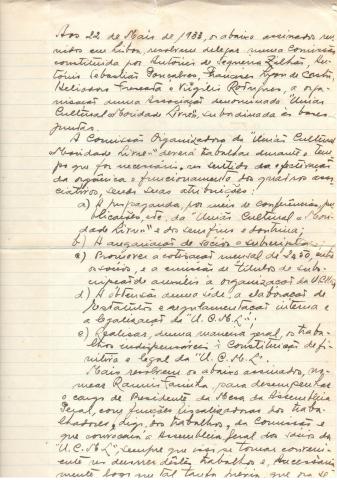 Aos 22 de Maio de 1933, os abaixo assinados, reu-
nidos em Lisboa, resolvem delegar numa Comissão
constituida por António de Sequeira Zilhão, An-
tónio Sebastião Gonçalves, Francisco de Castro,
Heliodoro e Virgilio Rodrigues, a orga-
nisação duma Associação denominada "União
Cultural Mocidade Livre", subordinada ás bases
juntas.
A Comissão Organizadora da "União Cultural
Mocidade Livre" deverá trabalhar durante o tem-
po que for necessário, no sentido da efectivação
da orgânica e funcionamento dos quadros asso-
ciativos, sendo suas atribuições:
a) A propaganda, por meio de conferências, pu-
blicações, etc. da "União Cultural Moci-
dade Livre" e dos seus fins e doutrina;
b) A angariação de sócios e subscritores;
c) Promover a cotisação mensal de 2$50, entre
os sócios, e a emissão de titulos de subs-
crição de auxilio á organização da U.C.M.L.;
d) A obtenção duma séde, a elaboração de
Estatutos e regulamentação interna e
a legalisação da "U.C.M.L.";
e) Realisar, duma maneira geral, os traba-
lhos indispensáveis á Constituição defi-
nitiva e legal da "U.C.M.L."
Mais resolvem os abaixo assinados, no-
mear para desempenhar
o cargo de Presidente da Mesa da Assembleia
Geral, com funções fiscalizadoras dos traba-
lhadores, digo, dos trabalhos, da Comissão e
que convocará a Assembleia geral dos sócios da
"U.C.M.L.", sempre que isso se tornar conveni-
ente no decorrer dêstes trabalhos e, necessaria-
mente logo que tal